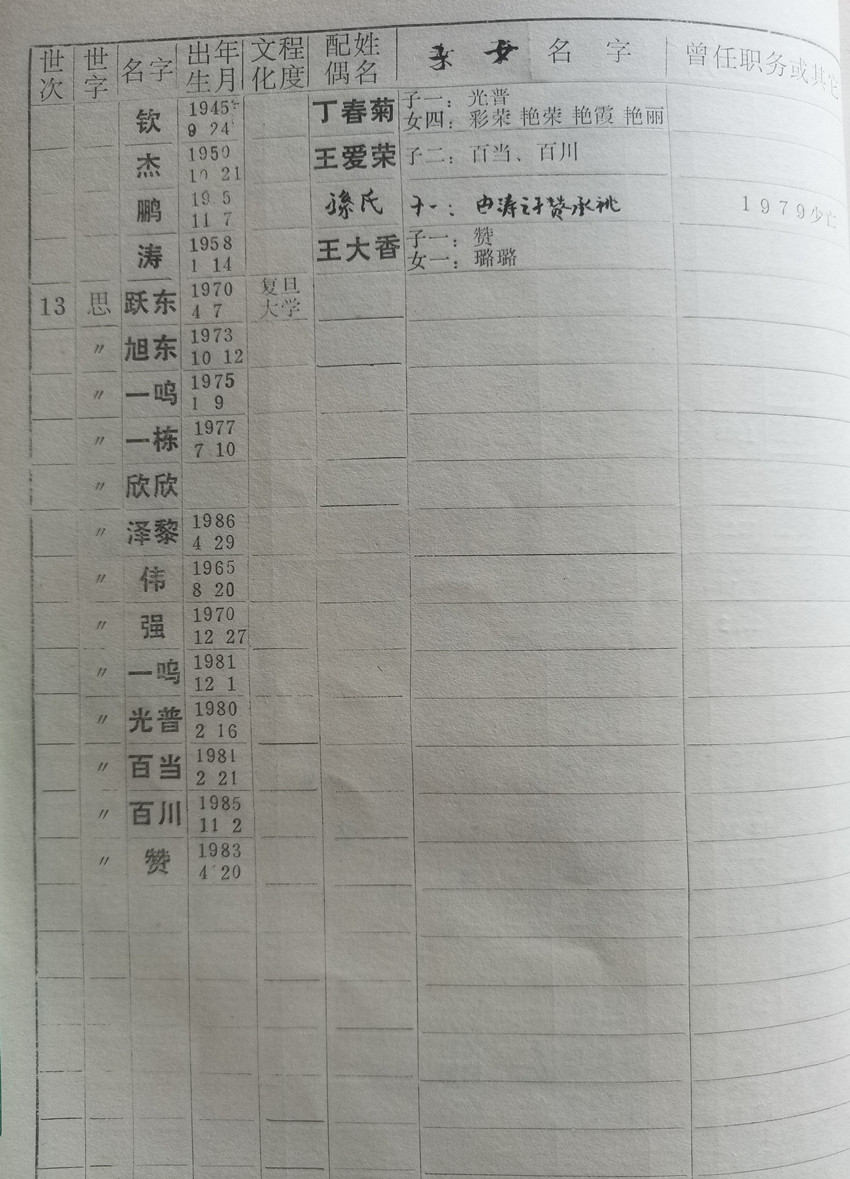 世次 世字 名字 出生年月 文化程度 配偶姓名 子女名字 曾任职务或其它
钦 1945 9 24 丁春菊 子一：光普
女四：彩荣 艳荣 艳霞 艳丽
杰 1950 10 21 王爱荣 子二：百当、百川
鹏 19 5 11 7 孫氏 子一：由涛之子赞承祧 1979少亡
涛 1958 1 14 王大香 子一：赞
女一：璐璐
13 思 跃东 1970 4 7 复旦大学
〃 旭东 1973 10 12
〃 一鸣 1975 1 9
〃 一栋 1977 7 10
〃 欣欣
〃 泽黎 1986 4 29
〃 伟 1965 8 20
〃 强 1970 12 27
〃 一鸣 1981 12 1
〃 光普 1980 2 16
〃 百当 1981 2 21
〃 百川 1985 11 2
〃 赞 1983 4 20